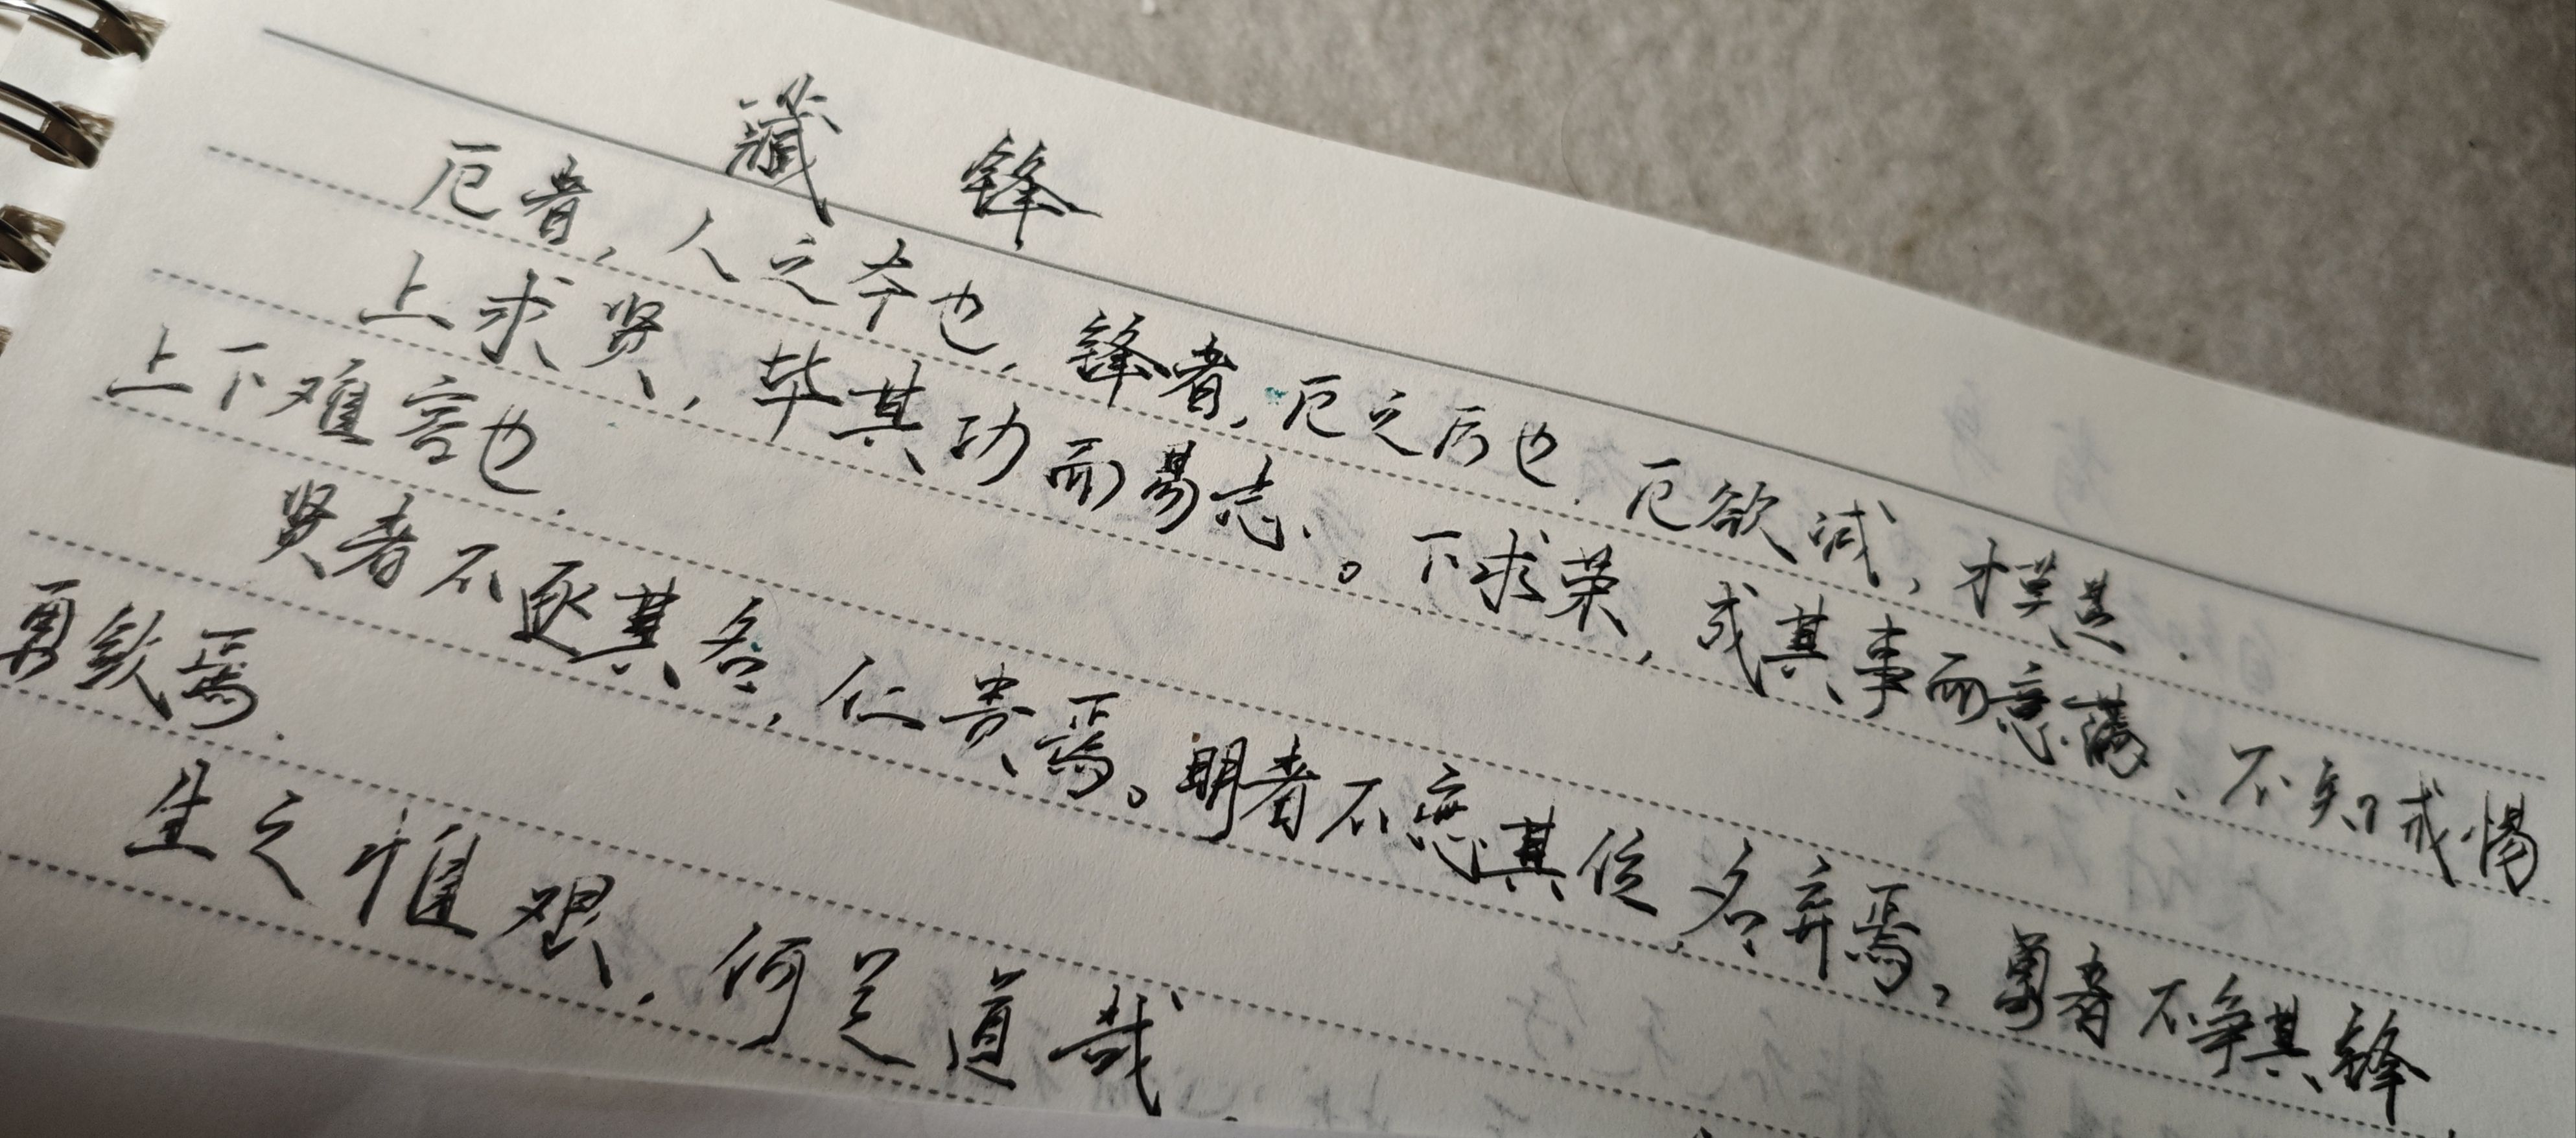 藏 锋
厄者，人之本也，锋者，厄之后也．厄欲减，才莫甚．
上求贤，毕其功而易志．。下求荣，成其事而意满、不知戒惕
上下难容也．
贤者不匿其名，仁贵焉。明者不恋其位，名弃焉。勇者不争其锋
勇敛焉．
生之惟艰，何足道哉．